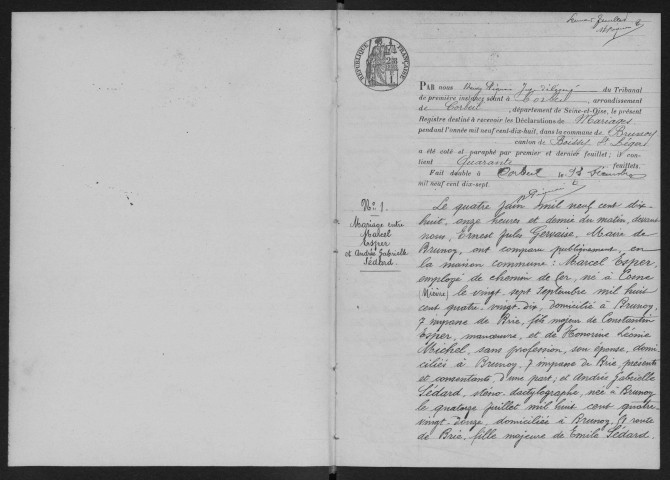 Premier feuillet
RÉPUBLIQUE FRANÇAISE
PAR nous Juge délégué du Tribunal
de première instance séant à Corbeil, arrondissement
de Corbeil, département de Seine-et-Oise, le présent
Registre destiné à recevoir les Déclarations de Mariages
pendant l'année mil neuf cent dix-huit, dans la commune de Brunoy
canton de Boissy St Léger
a été coté et paraphé par premier et dernier feuillet; il con-
tient Quarante feuillets.
Fait double à Corbeil le Décembre
mil neuf cent dix-sept.
No 1.
Mariage entre
Marcel
Esper
et Andrée Gabrielle
Sédard.
Le quatre juin mil neuf cent dix-
huit, onze heures et demie du matin, devant
nous, Ernest Jules Gervaise, Maire de
Brunoy, ont comparu publiquement en
la maison commune: Marcel Esper,
employé de chemin de fer, né à Cosne
(Nièvre) le vingt-sept septembre mil huit
cent quatre-vingt-dix, domicilié à Brunoy,
7 impasse de Brie, fils majeur de Constantin
Esper, manœuvre, et de Honorine Léonie
Michel, sans profession, son épouse, domi-
ciliés à Brunoy, 7 impasse de Brie, présents
et consentants, d'une part; et Andrée Gabrielle
Sédard, sténo-dactylographe, née à Brunoy
le quatorze juillet mil huit cent quatre-
vingt-douze, domiciliée à Brunoy, route
de Brie, fille majeure de Emile Sédard.